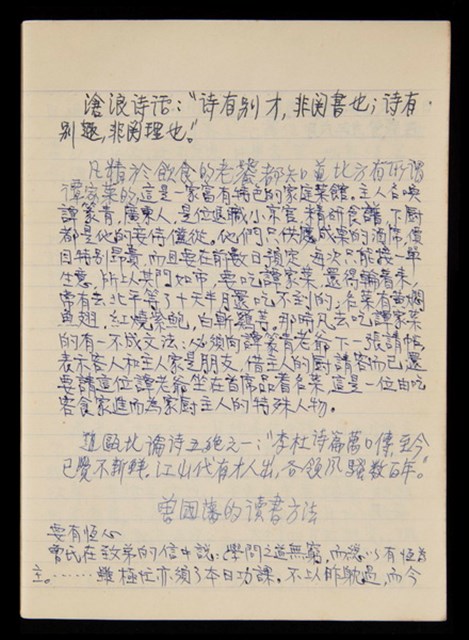 滄浪诗话："诗有别才，非阅書也；诗有
别趣，非阅理也。"
凡精於飲食的老饕都知道北方有所谓
譚家菜的，這是一家富有特色的家庭菜館。主人名唤
譚篆青，廣東人，是位退職小京官，精研食譜，下厨
都是他的妾侍僮從。他們只供應成桌的酒席，價
目特别昂貴，而且要在前数日預定，每次只能接一單
生意，所以其門如市，要吃譚家菜，還得輪着来，
常有去北平等了十天半月還吃不到的，名菜有黄燜
魚翅，紅燒紫鲍，白斬鷄等。那時凡去吃譚家菜
的有一不成文法：必须向譚篆青老爺下一張請帖，
表示客人和主人家是朋友，借主人的厨請客而已，還
要請這位譚老爺坐在首席品嘗名菜，這是一位由吃
客食家進而為家厨主人的特殊人物。
趙甌北論诗五絶之一："李杜诗篇萬口傳，至今
已覺不新鲜。江山代有才人出，各领风騷数百年。"
曾國藩的读書方法
要有恒心
曾氏在致弟的信中説：學問之道無窮，而總以有恒為
主。……雖極忙亦须了本日功課。不以昨躭過，而今